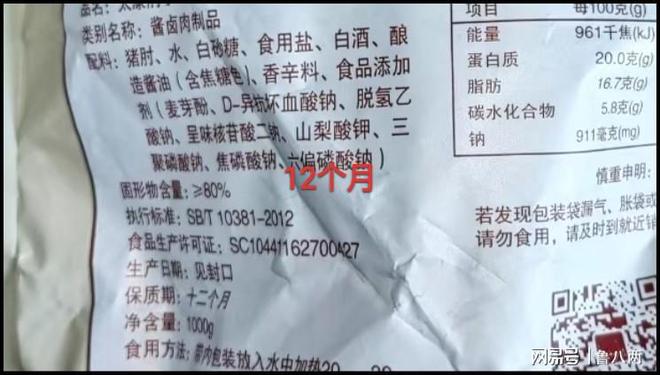 类别名称：酱卤肉制品
配料：猪肘、水、白砂糖、食用盐、白酒、酿
造酱油（含焦糖色）、香辛料、食品添加
剂（麦芽酚、D-异抗坏血酸钠、脱氢乙
酸钠、呈味核苷酸二钠、山梨酸钾、三
聚磷酸钠、焦磷酸钠、六偏磷酸钠）
12个月
固形物含量：≥80%
执行标准：SB/T 10381-2012
食品生产许可证：SC10441162700427
生产日期：见封口
保质期：十二个月
净含量：1000g
食用方法：前肉包装放入水中加热20
项目 每100克(g)
能量 961千焦(kJ)
蛋白质 20.0克(g)
脂肪 16.7克(g)
碳水化合物 5.8克(g)
钠 911毫克(mg)
慎重申明：
若发现包装袋漏气、胀袋或
请勿食用，请及时到就近销
网易号 | 鲁八两